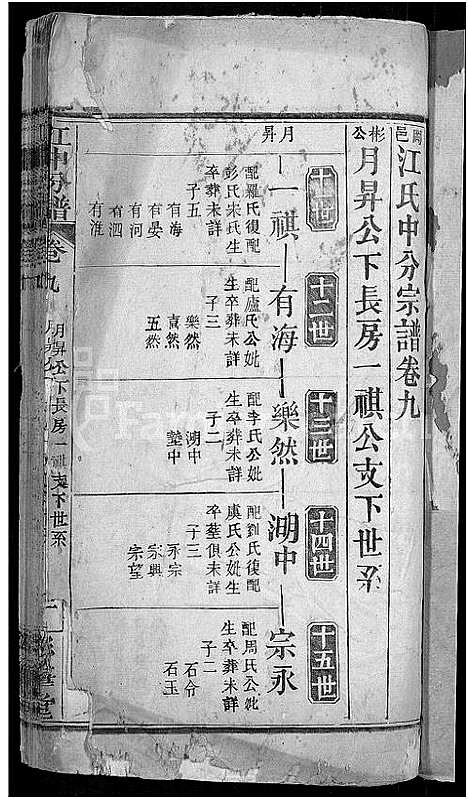 閤邑江氏中分宗譜卷九
彬公月昇公下長房一祺公支下世系
月昇
十一世
一祺
配羅氏復配
彭氏宋氏生
卒葬未詳
子五
有海
有晏
有河
有泗
有淮
十二世
有海
配盧氏公妣
生卒葬未詳
子三
樂然
真然
五然
十三世
樂然
配李氏公妣
生卒葬未詳
子二
湖中
塾中
十四世
湖中
配劉氏復配
虞氏公妣生
卒塟俱未詳
子三
永宗
永興
宗望
十五世
宗永
配周氏公妣
生卒葬未詳
子二
石令
石玉
江中分譜
卷九
月昇公下長房一祺支下世系